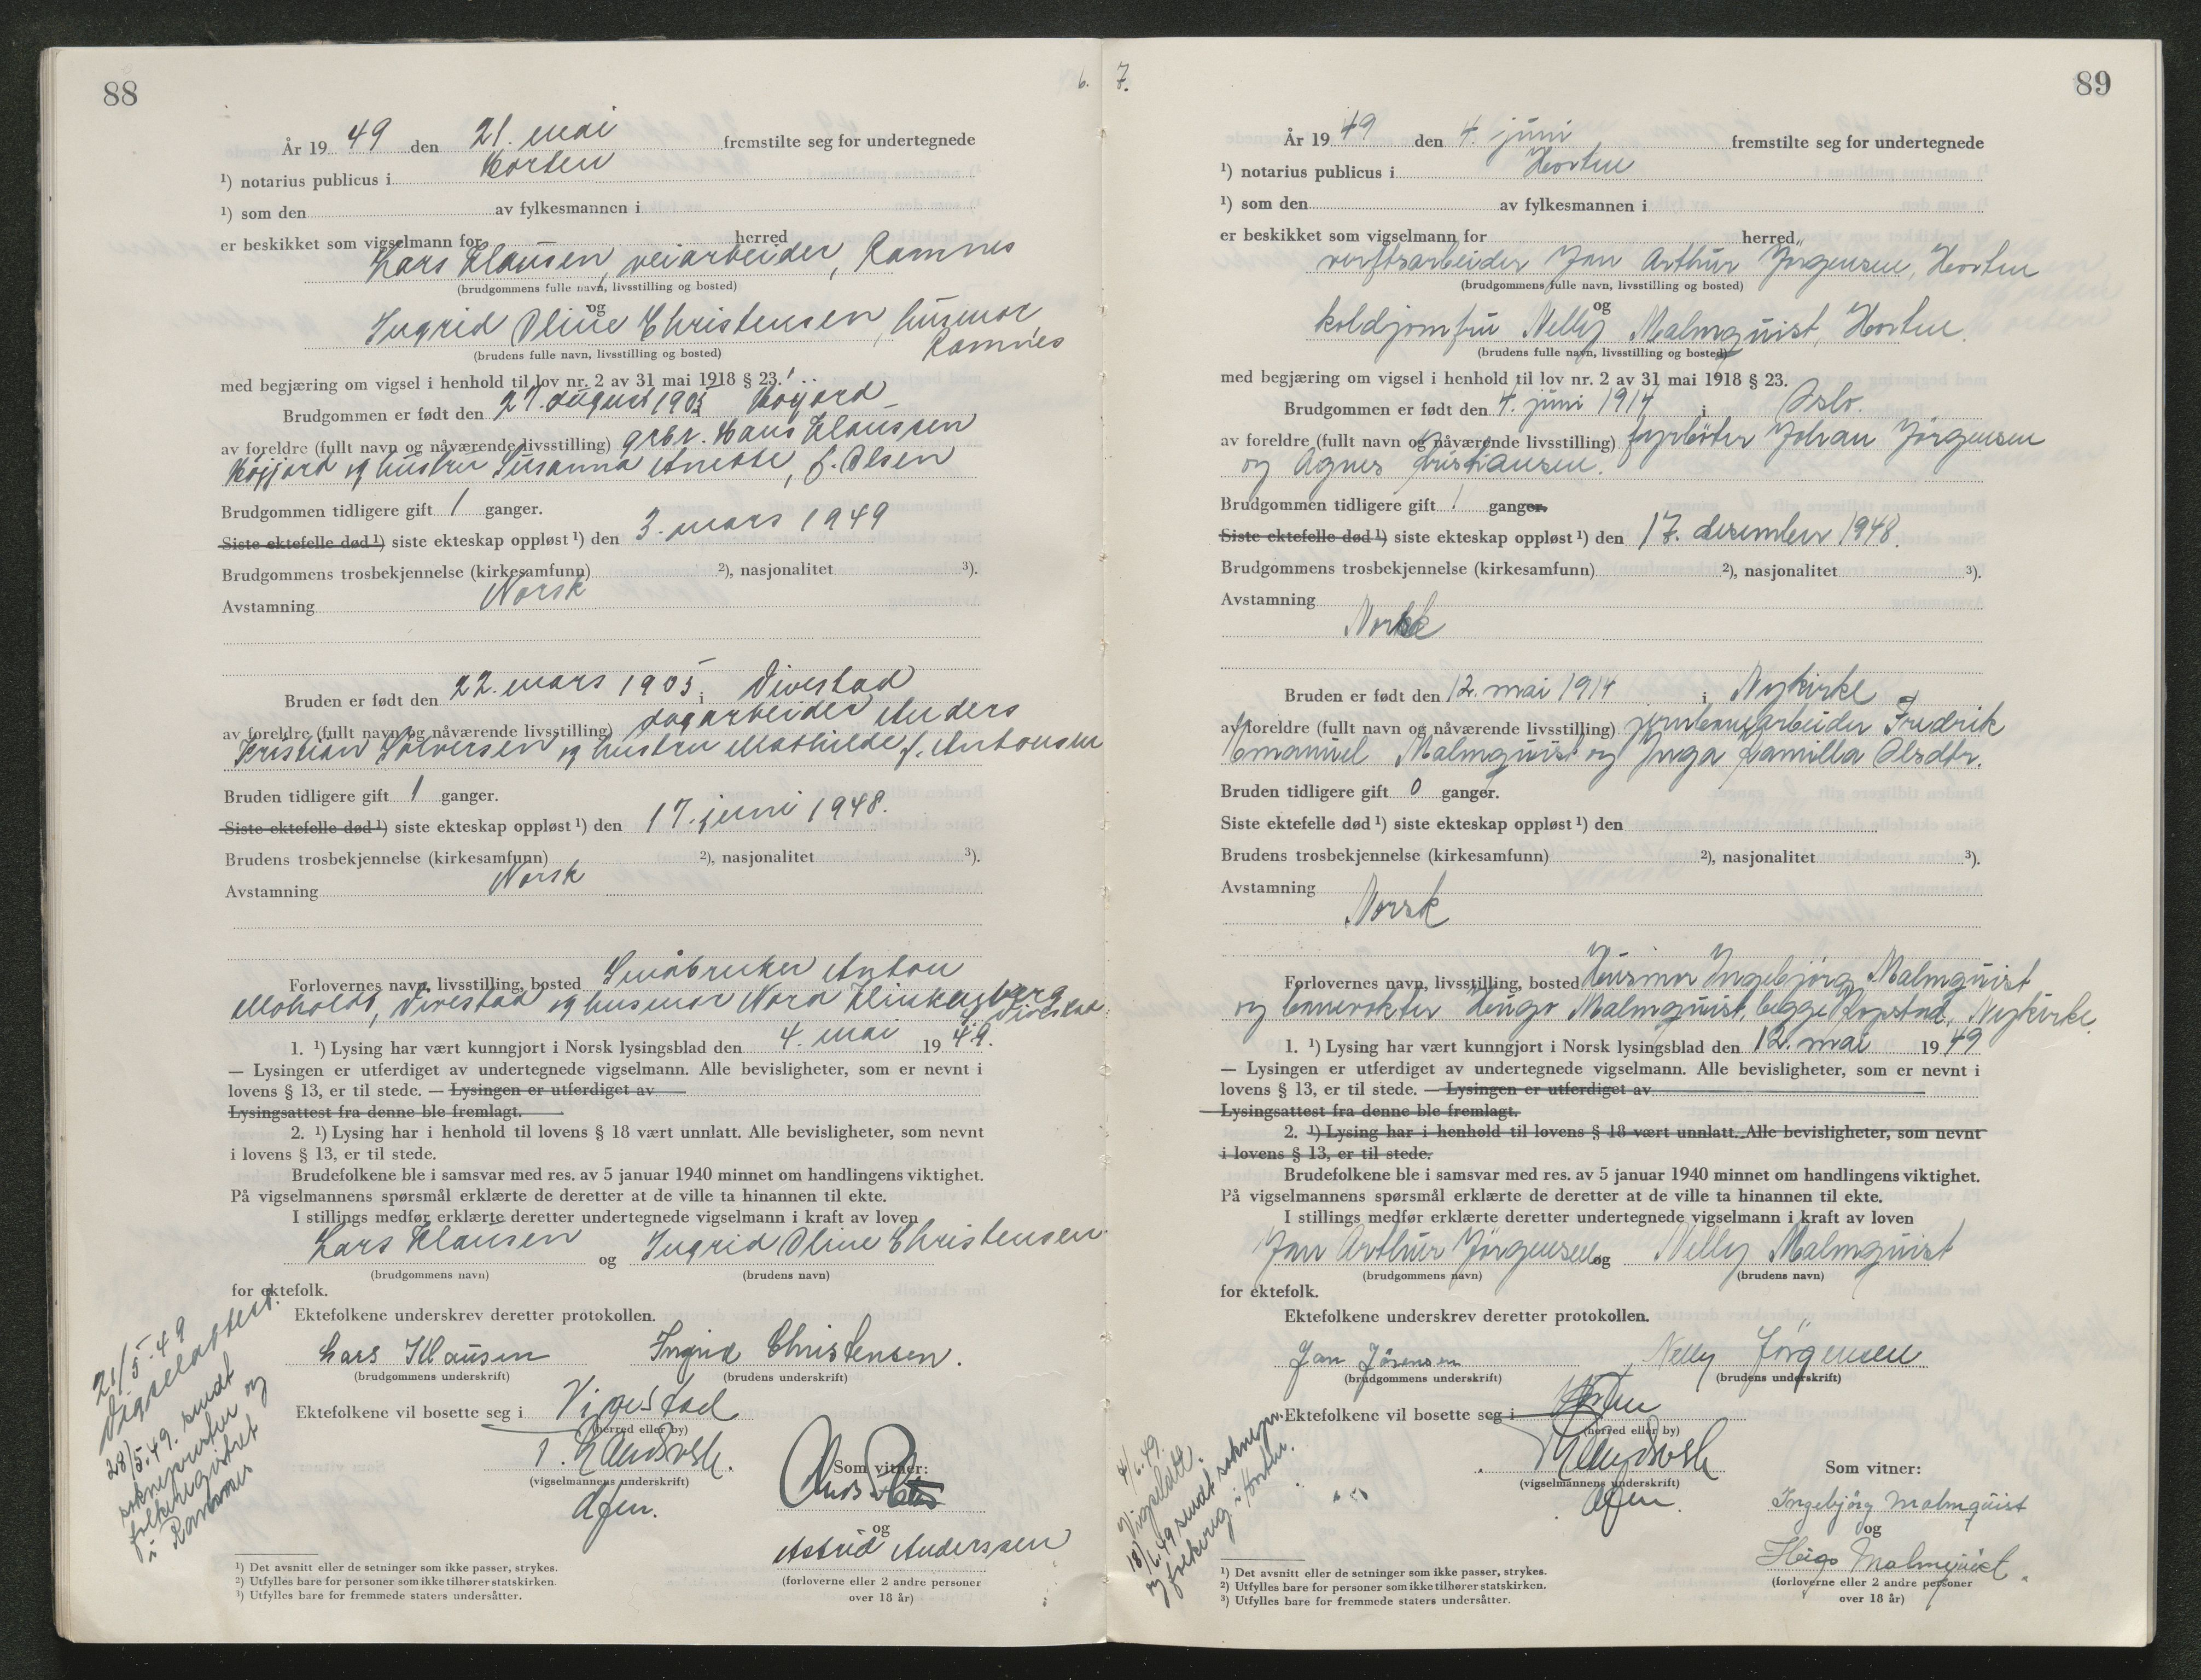 88
6.
År 19 49 den 21. mai fremstilte seg for undertegnede
¹) notarius publicus i Horten
¹) som den av fylkesmannen i
er beskikket som vigselmann for herred
Lars Klausen, veiarbeider, Ramnes
(brudgommens fulle navn, livsstilling og bosted)
og
Ingrid Oline Christensen, husmor
Ramnes
(brudens fulle navn, livsstilling og bosted)
med begjæring om vigsel i henhold til lov nr. 2 av 31 mai 1918 § 23.
Brudgommen er født den 27. august 1905 Høyjord
av foreldre (fullt navn og nåværende livsstilling) grbr. Hans Klaussen
Høyjord og hustru Susanna Anette, f. Olsen
Brudgommen tidligere gift 1 ganger.
Siste ektefelle død ¹) siste ekteskap oppløst ¹) den 3. mars 1949
Brudgommens trosbekjennelse (kirkesamfunn) ²), nasjonalitet ³).
Avstamning Norsk
Bruden er født den 22. mars 1905 i Vivestad
av foreldre (fullt navn og nåværende livsstilling) dagarbeider Anders
Kristian Halversen og hustru Mathilde f. Antonsen
Bruden tidligere gift 1 ganger.
Siste ektefelle død ¹) siste ekteskap oppløst ¹) den 17. juni 1948.
Brudens trosbekjennelse (kirkesamfunn) ²), nasjonalitet ³).
Avstamning Norsk
Forlovernes navn, livsstilling, bosted Småbruker Anton
Moholdt, Vivestad og husmor Nora Klinkenberg
Vivestad.
1. ¹) Lysing har vært kunngjort i Norsk lysingsblad den 4. mai 19 49.
— Lysingen er utferdiget av undertegnede vigselmann. Alle bevisligheter, som er nevnt i
lovens § 13, er til stede. — Lysingen er utferdiget av
Lysingsattest fra denne ble fremlagt.
2. ¹) Lysing har i henhold til lovens § 18 vært unnlatt. Alle bevisligheter, som nevnt
i lovens § 13, er til stede.
Brudefolkene ble i samsvar med res. av 5 januar 1940 minnet om handlingens viktighet.
På vigselmannens spørsmål erklærte de deretter at de ville ta hinannen til ekte.
I stillings medfør erklærte deretter undertegnede vigselmann i kraft av loven
Lars Klausen og Ingrid Oline Christensen
(brudgommens navn) (brudens navn)
for ektefolk.
Ektefolkene underskrev deretter protokollen.
Lars Klausen Ingrid Christensen.
(brudgommens underskrift) (brudens underskrift)
Ektefolkene vil bosette seg i Vivestad
(herred eller by)
(vigselmannens underskrift)
Som vitner:
og
Astrid Anderssen
(forloverne eller 2 andre personer
over 18 år)
21/5-49
Vigselattest.
28/5.49. sendt
sogneprester og
folkeregistret
i Ramnes
¹) Det avsnitt eller de setninger som ikke passer, strykes.
²) Utfylles bare for personer som ikke tilhører statskirken.
³) Utfylles bare for fremmede staters undersåtter.
7.
89
År 19 49 den 4. juni fremstilte seg for undertegnede
¹) notarius publicus i Horten
¹) som den av fylkesmannen i
er beskikket som vigselmann for herred
verftsarbeider Jan Arthur Jørgensen, Horten
(brudgommens fulle navn, livsstilling og bosted)
og
koldjomfru Nelly Malmquist, Horten.
(brudens fulle navn, livsstilling og bosted)
med begjæring om vigsel i henhold til lov nr. 2 av 31 mai 1918 § 23.
Brudgommen er født den 4. juni 1914 i Oslo.
av foreldre (fullt navn og nåværende livsstilling) fyrbøter Johan Jörgensen
og Agnes Kristiansen.
Brudgommen tidligere gift 1 ganger.
Siste ektefelle død ¹) siste ekteskap oppløst ¹) den 17. desember 1948.
Brudgommens trosbekjennelse (kirkesamfunn) ²), nasjonalitet ³).
Avstamning
Norsk
Bruden er født den 12. mai 1914 i Nykirke
av foreldre (fullt navn og nåværende livsstilling) jernbanearbeider Fredrik
Emanuel Malmquist og Inga Kamilla Olsdtr.
Bruden tidligere gift 0 ganger.
Siste ektefelle død ¹) siste ekteskap oppløst ¹) den
Brudens trosbekjennelse (kirkesamfunn) ²), nasjonalitet ³).
Avstamning
Norsk
Forlovernes navn, livsstilling, bosted Husmor Ingebjørg Malmquist
og banevokter Hugo Malmquist, begge Kopstad, Nykirke.
1. ¹) Lysing har vært kunngjort i Norsk lysingsblad den 12. mai 19 49
— Lysingen er utferdiget av undertegnede vigselmann. Alle bevisligheter, som er nevnt i
lovens § 13, er til stede. — Lysingen er utferdiget av
Lysingsattest fra denne ble fremlagt.
2. ¹) Lysing har i henhold til lovens § 18 vært unnlatt. Alle bevisligheter, som nevnt
i lovens § 13, er til stede.
Brudefolkene ble i samsvar med res. av 5 januar 1940 minnet om handlingens viktighet.
På vigselmannens spørsmål erklærte de deretter at de ville ta hinannen til ekte.
I stillings medfør erklærte deretter undertegnede vigselmann i kraft av loven
Jan Arthur Jörgensen og Nelly Malmquist
(brudgommens navn) (brudens navn)
for ektefolk.
Ektefolkene underskrev deretter protokollen.
Jan Jörensen Nelly Jörgensen
(brudgommens underskrift) (brudens underskrift)
Ektefolkene vil bosette seg i Horten
(herred eller by)
(vigselmannens underskrift)
Som vitner:
Ingebjörg Malmquist
og
Hugo Malmquist.
(forloverne eller 2 andre personer
over 18 år)
4/6.49.
Vigselatt.
18/6.49 sendt soknepr.
og folkereg. i Horten.
¹) Det avsnitt eller de setninger som ikke passer, strykes.
²) Utfylles bare for personer som ikke tilhører statskirken.
³) Utfylles bare for fremmede staters undersåtter.